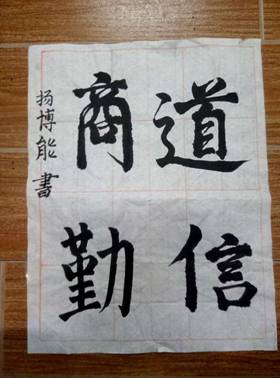 道信
商勤
扬博能書